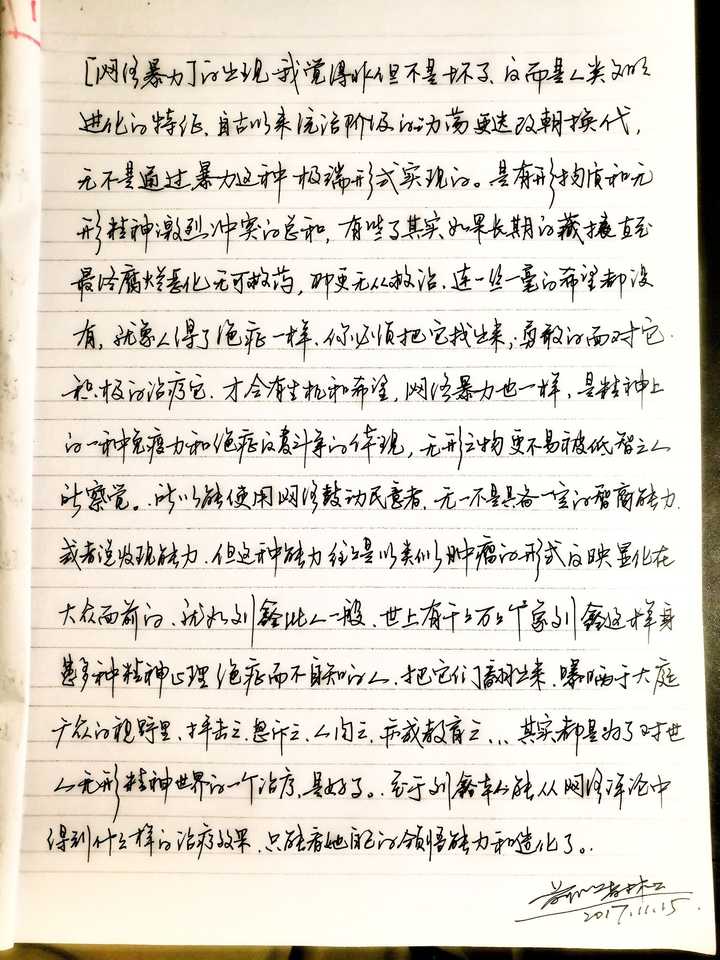 [网络暴力]的出现我觉得非但不是坏了、反而是人类文明
进化的特征，自古以来统治阶级的动荡更迭改朝换代，
无不是通过暴力这种极端形式实现的。是有形物质和无
形精神激烈冲突的总和，有些了其实如果长期的藏掖直至
最终腐烂恶化无可救药，那更无从救治，连一丝一毫的希望都没
有，就象人得了绝症一样，你必须把它找出来，勇敢的面对它
积极的治疗它，才会有生机和希望，网络暴力也一样，是精神上
的一种免疫力和绝症的奋斗争的体现，无形之物更不易被低智之人
所察觉。所以能使用网络鼓动民意者，无一不是具备一定的智商能力
或者说发现能力，但这种能力往往是以类似肿瘤的形式反映显化在
大众面前的，就如刘鑫此人一般，世上有千千万万个象刘鑫这样身
患多种精神心理绝症而不自知的人，把它们翻出来，曝晒于大庭
广众的视野里、抨击之、怒斥之、人肉之、亦或教育之、、、其实都是为了对世
人无形精神世界的一个治疗，是好了。至于刘鑫本人能从网络评论中
得到什么样的治疗效果，只能看她自己的领悟能力和造化了。
2017.11.15.